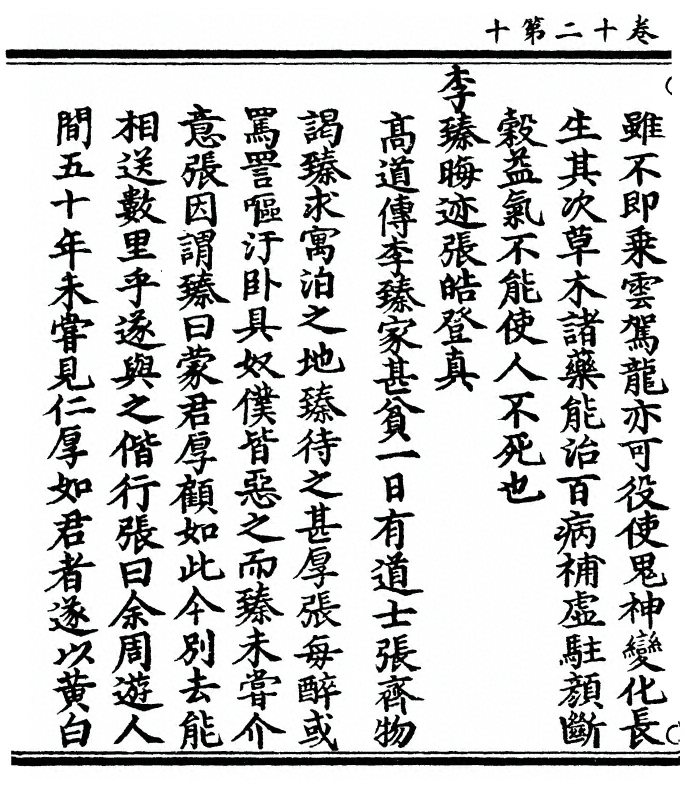 卷十二第十
雖不即乗雲駕龍亦可役使鬼神變化長
生其次草木諸藥能治百病補虛駐顏斷
穀益氣不能使人不死也
李臻晦迹張皓登真
高道傳李臻家甚貧一日有道士張齊物
謁臻求寓泊之地臻待之甚厚張每醉或
罵詈嘔汙卧具奴僕皆惡之而臻未嘗介
意張因謂臻曰蒙君厚顧如此今別去能
相送數里乎遂與之偕行張曰余周遊人
間五十年未嘗見仁厚如君者遂以黄白